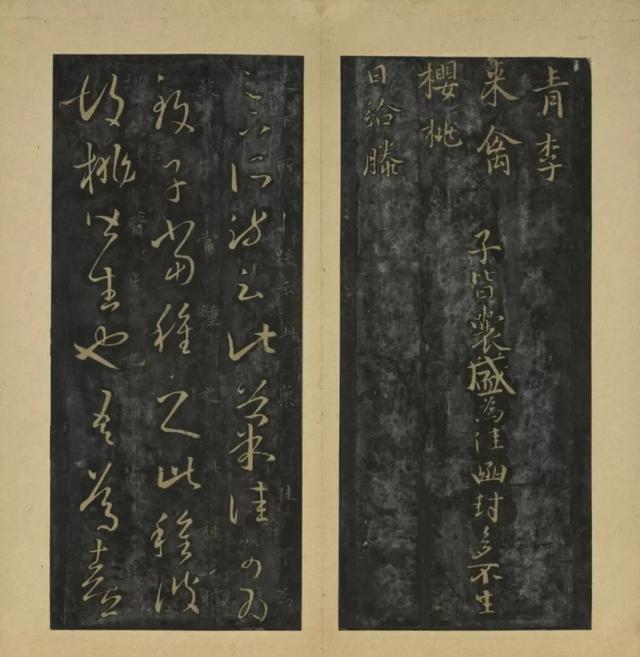 青李
来禽
子皆囊盛為佳函封多不生
櫻桃
日給滕
足下所疏云此菓佳可為
致子當種之此種彼
胡桃皆生也吾篤喜